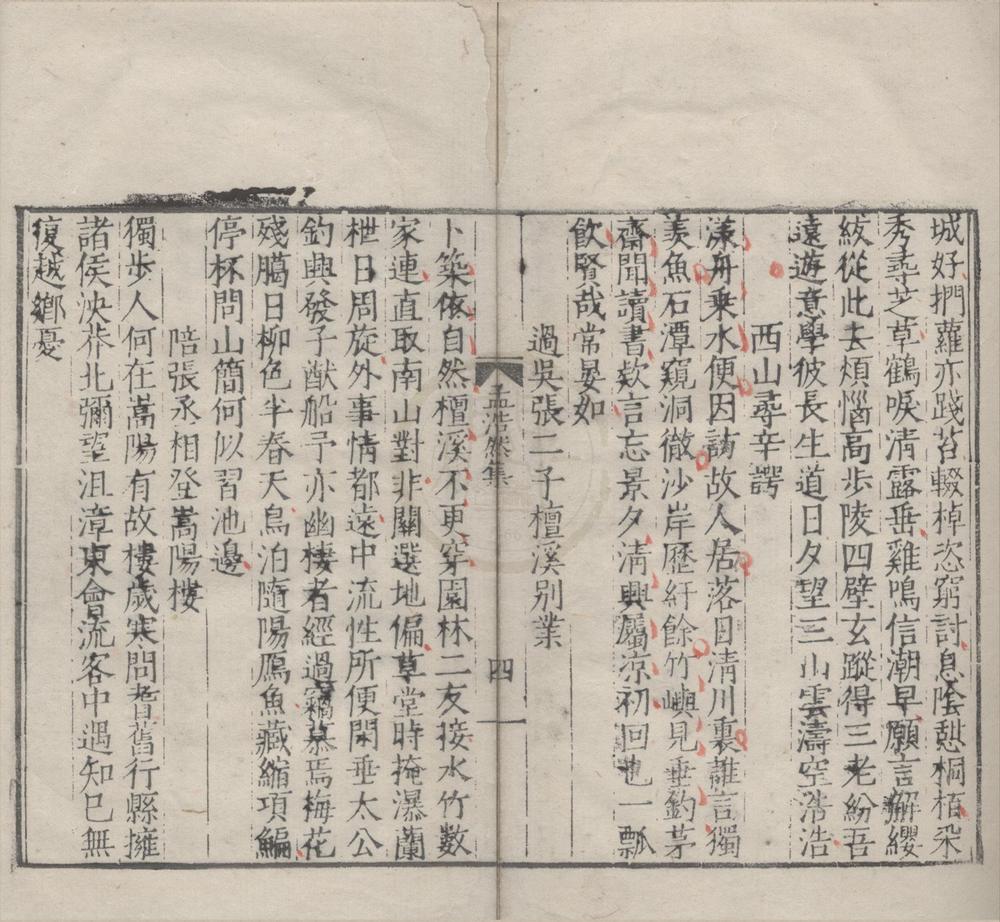 城好捫蘿亦踐苔輟棹恣窮討息陰憇桐栢采
秀尋芝草鶴唳清露垂雞鳴信潮早願言解纓
紱從此去煩惱高步陵四壁玄蹤得三老紛吾
遠遊意學彼長生道日夕望三山雲濤空浩浩
西山尋辛諤
漾舟乗水便因訪故人居落日清川裏誰言獨
羡魚石潭窺洞徹沙岸歷紆餘竹嶼見垂釣茅
齋聞讀書欵言忘景夕清興屬凉初回也一瓢
飲賢哉常晏如
過吳張二子檀溪別業
孟浩然集
四
卜築依自然檀溪不更穿園林二友接水竹數
家連直取南山對非關選地偏草堂時掩瀑蘭
枻日周旋外事情都遠中流性所便閑垂太公
釣興發子猷船予亦幽棲者經過竊慕焉梅花
殘臈日柳色半春天鳥泊隨陽鴈魚藏縮項鯿
停杯問山簡何似習池邊
陪張丞相登嵩陽樓
獨步人何在嵩陽有故樓歲寒問耆舊行縣擁
諸侯泱莽北彌望沮漳東會流客中遇知已無
復越鄉憂